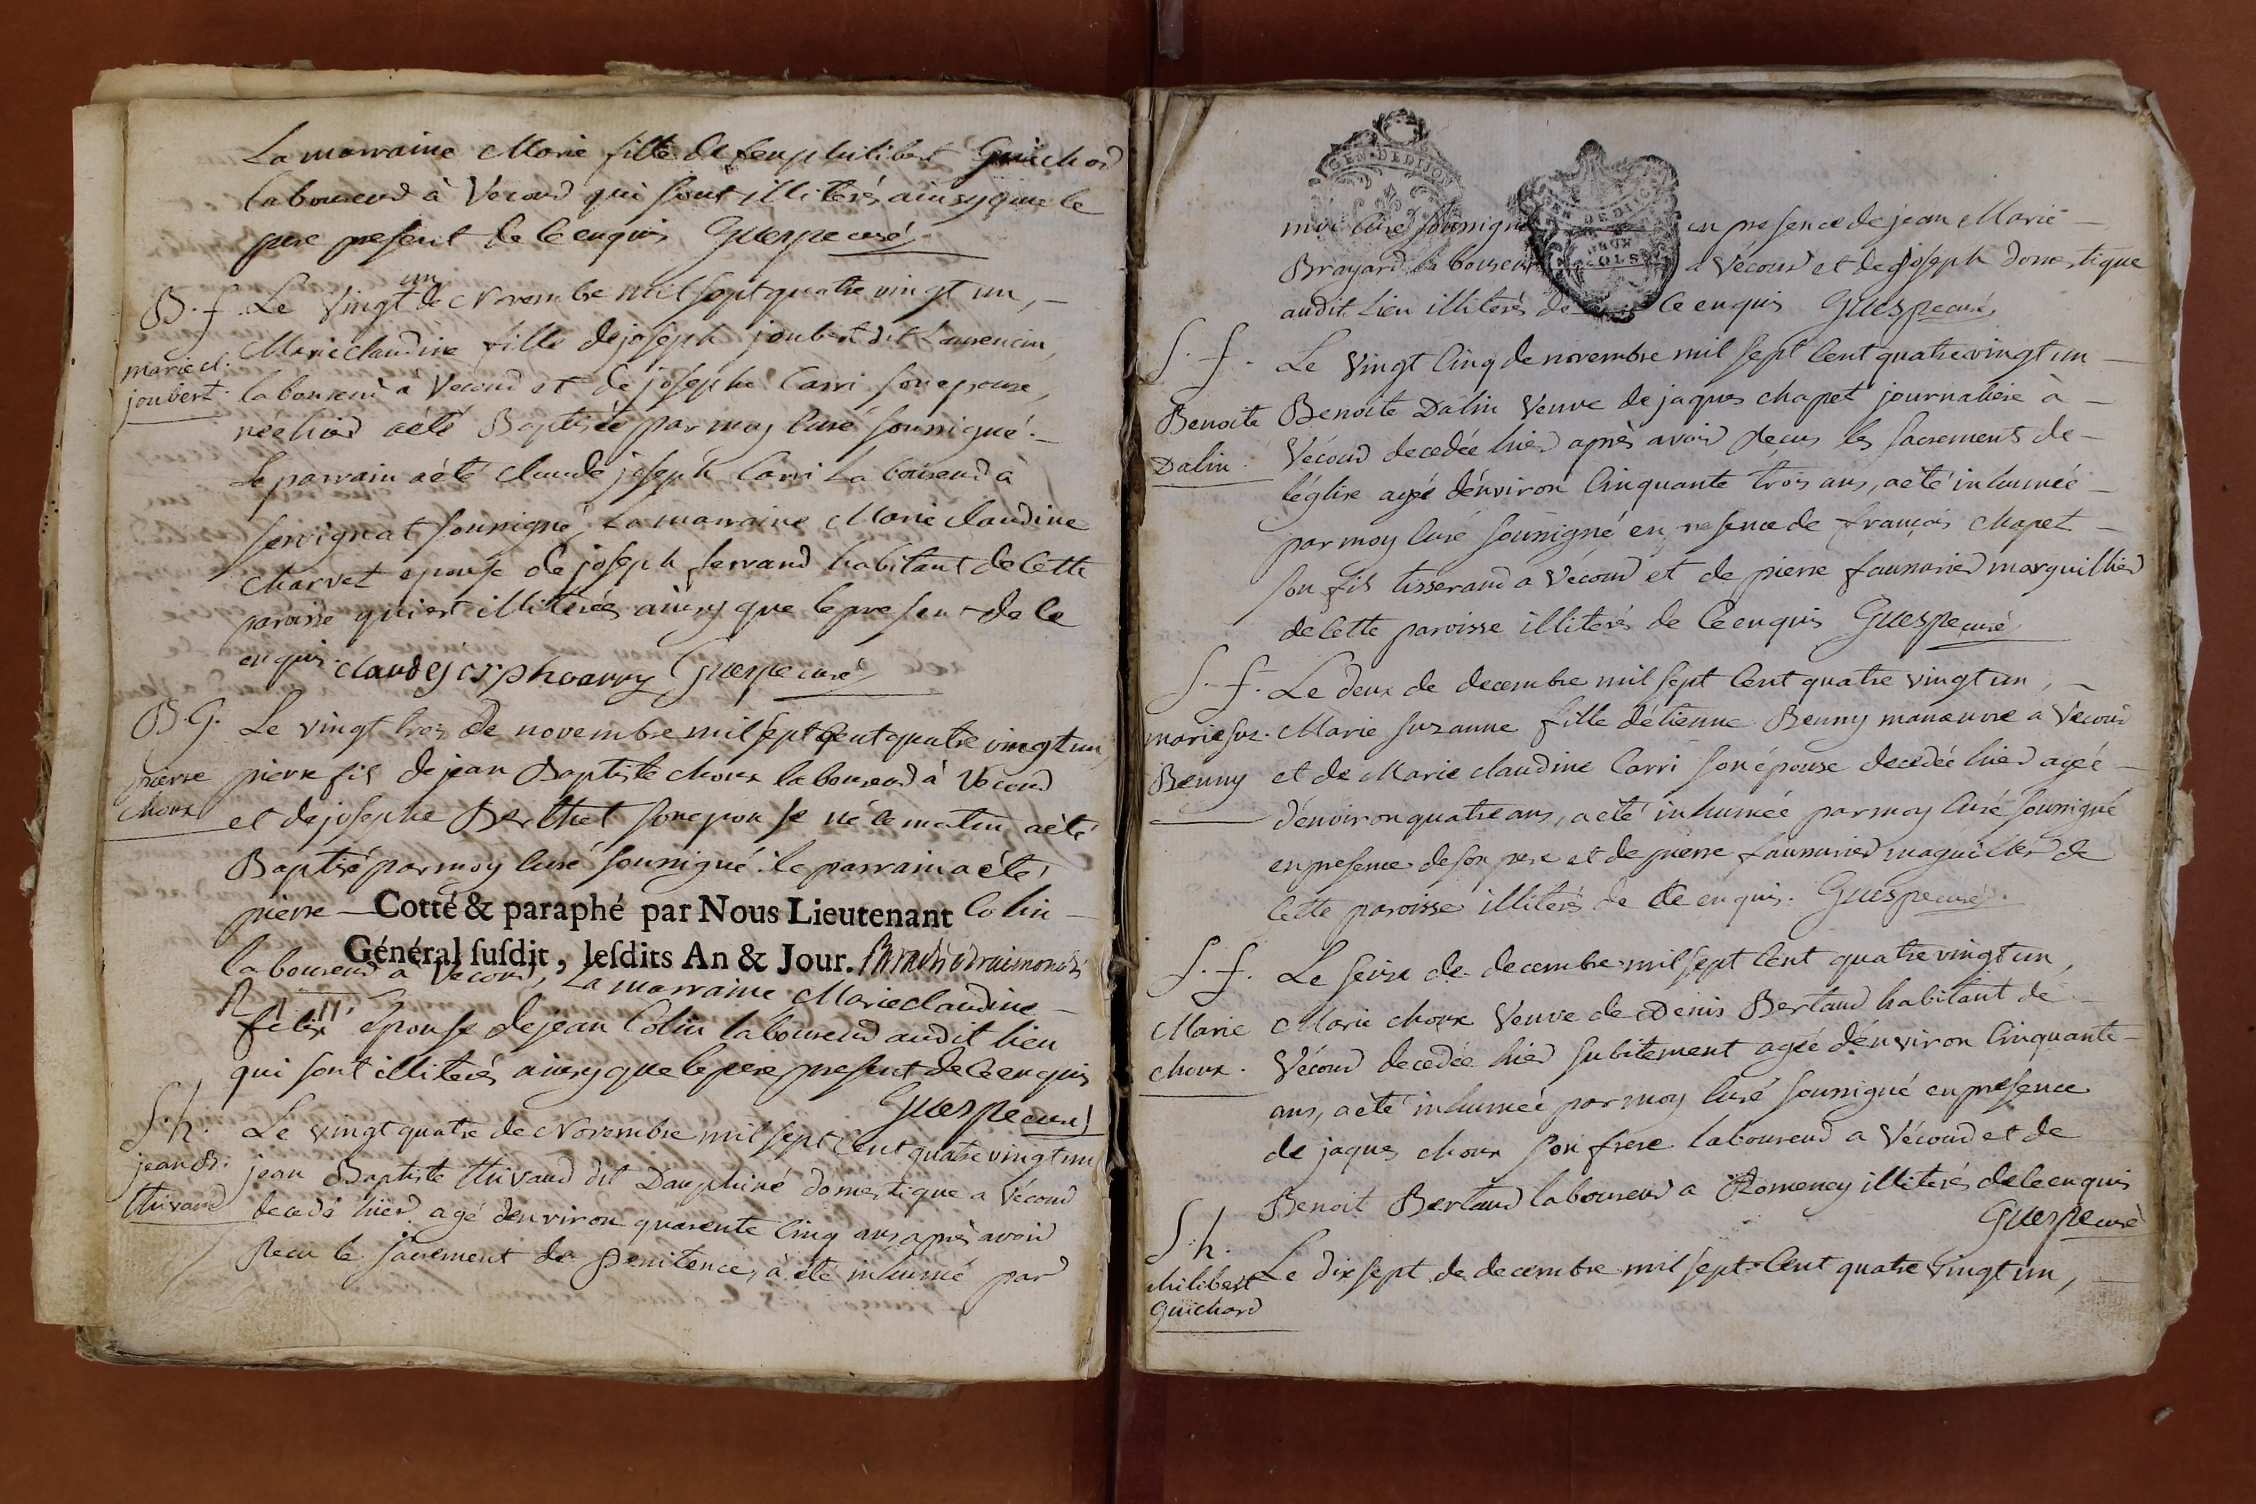 La marraine Marie fille de feu philibert Guichard
laboureur à Vecour qui sont illiterés ainsy que le
pere present de ce enquis Guespe curé
B. f. Le vingt un de Novembre mil sept quatre vingt un,
Marie Claudine fille de joseph joubert dit Laurencin,
marie cl.
joubert.
laboureur à Vecour et de josephe Carri son epouse,
née hier a été Baptisée par moy Curé soussigné.
Le parrain a été claude joseph Carri Laboureur à
servignat soussigné, La marraine Marie claudine
Charvet epouse de joseph ferrand habitant de Cette
paroisse qui est illiterée ainsy que le present de Ce
enquis. Guespe curé
B. G. Le vingt trois de novembre mil sept Cent quatre vingt un,
pierre
choux
pierre fils de jean Baptiste choux laboureur à Vecour
et de josephe Berthet son epouse né Ce matin, a été
Baptisé par moy Curé soussigné. le parrain a été,
pierre Colin
Cotté & paraphé par Nous Lieutenant
Général susdit, lesdits An & Jour.
laboureur à Vecour, La marraine Marie claudine
felix épouse de jean Colin laboureur audit lieu
qui sont illiterés ainsy que le pere present de Ce enquis
Guespe curé
S. h. Le vingt quatre de Novembre mil sept Cent quatre vingt un
jean B.
thivand
jean Baptiste thivand dit Dauphiné domestique a Vécour
decedé hier agé d'environ quarente Cinq ans après avoir
Recu le sacrement de Penitence, a été inhumé par
GEN. DE DIJON
moi Curé soussigné en presence de jean Marie
Brayard laboureur a Vécour et de joseph domestique
audit Lieu illiterés de Ce enquis Guespe curé
S. f. Le Vingt Cinq de novembre mil sept Cent quatre vingt un
Benoite
Dalin.
Benoite Dalin Veuve de jaques chapet journaliere à
Vécour decedée hier après avoir Recus les sacrements de
l'église agée d'environ Cinquante trois ans, a été inhumée
par moy Curé soussigné en presence de françois chapet
son fils tisserand a Vécour et de pierre faunarier marguillier
de Cette paroisse illiterés de Ce enquis Guespe curé
S. f. Le deux de decembre mil sept Cent quatre vingt un,
marie suz.
Benny
Marie suzanne fille d'étienne Benny manœuvre a Vécour
et de Marie claudine Carri son épouse decedée hier agée
d'environ quatre ans, a été inhumée par moy Curé soussigné
en presence de son pere et de pierre faunarier maguillier de
Cette paroisse illiterés de Ce enquis. Guespe curé.
S. f. Le seize de decembre mil sept Cent quatre vingt un,
Marie
choux.
Marie choux Veuve de Denis Bertaud habitant de
Vécour decedée hier subitement agée d'environ Cinquante
ans, a été inhumée par moy Curé soussigné en presence
de jaques choux son frere laboureur a Vécour et de
Benoit Bertaud laboureur a Romenay illiterés de Ce enquis
Guespe curé
S. h. Le dix sept de decembre mil sept Cent quatre Vingt un,
philibert
Guichard